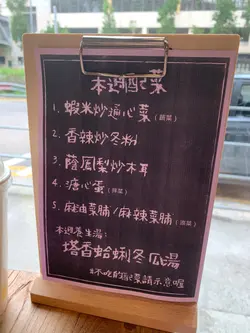 本週配菜
1. 蝦米炒通心菜(蔬菜)
2. 香辣炒冬粉
3. 蔭鳳梨炒木耳
4. 溏心蛋(蔬菜)
5. 麻油菜脯/麻辣菜脯(蔬菜)
本週養生湯:
塔香蛤蜊冬瓜湯
#不吃的配菜請示意喔